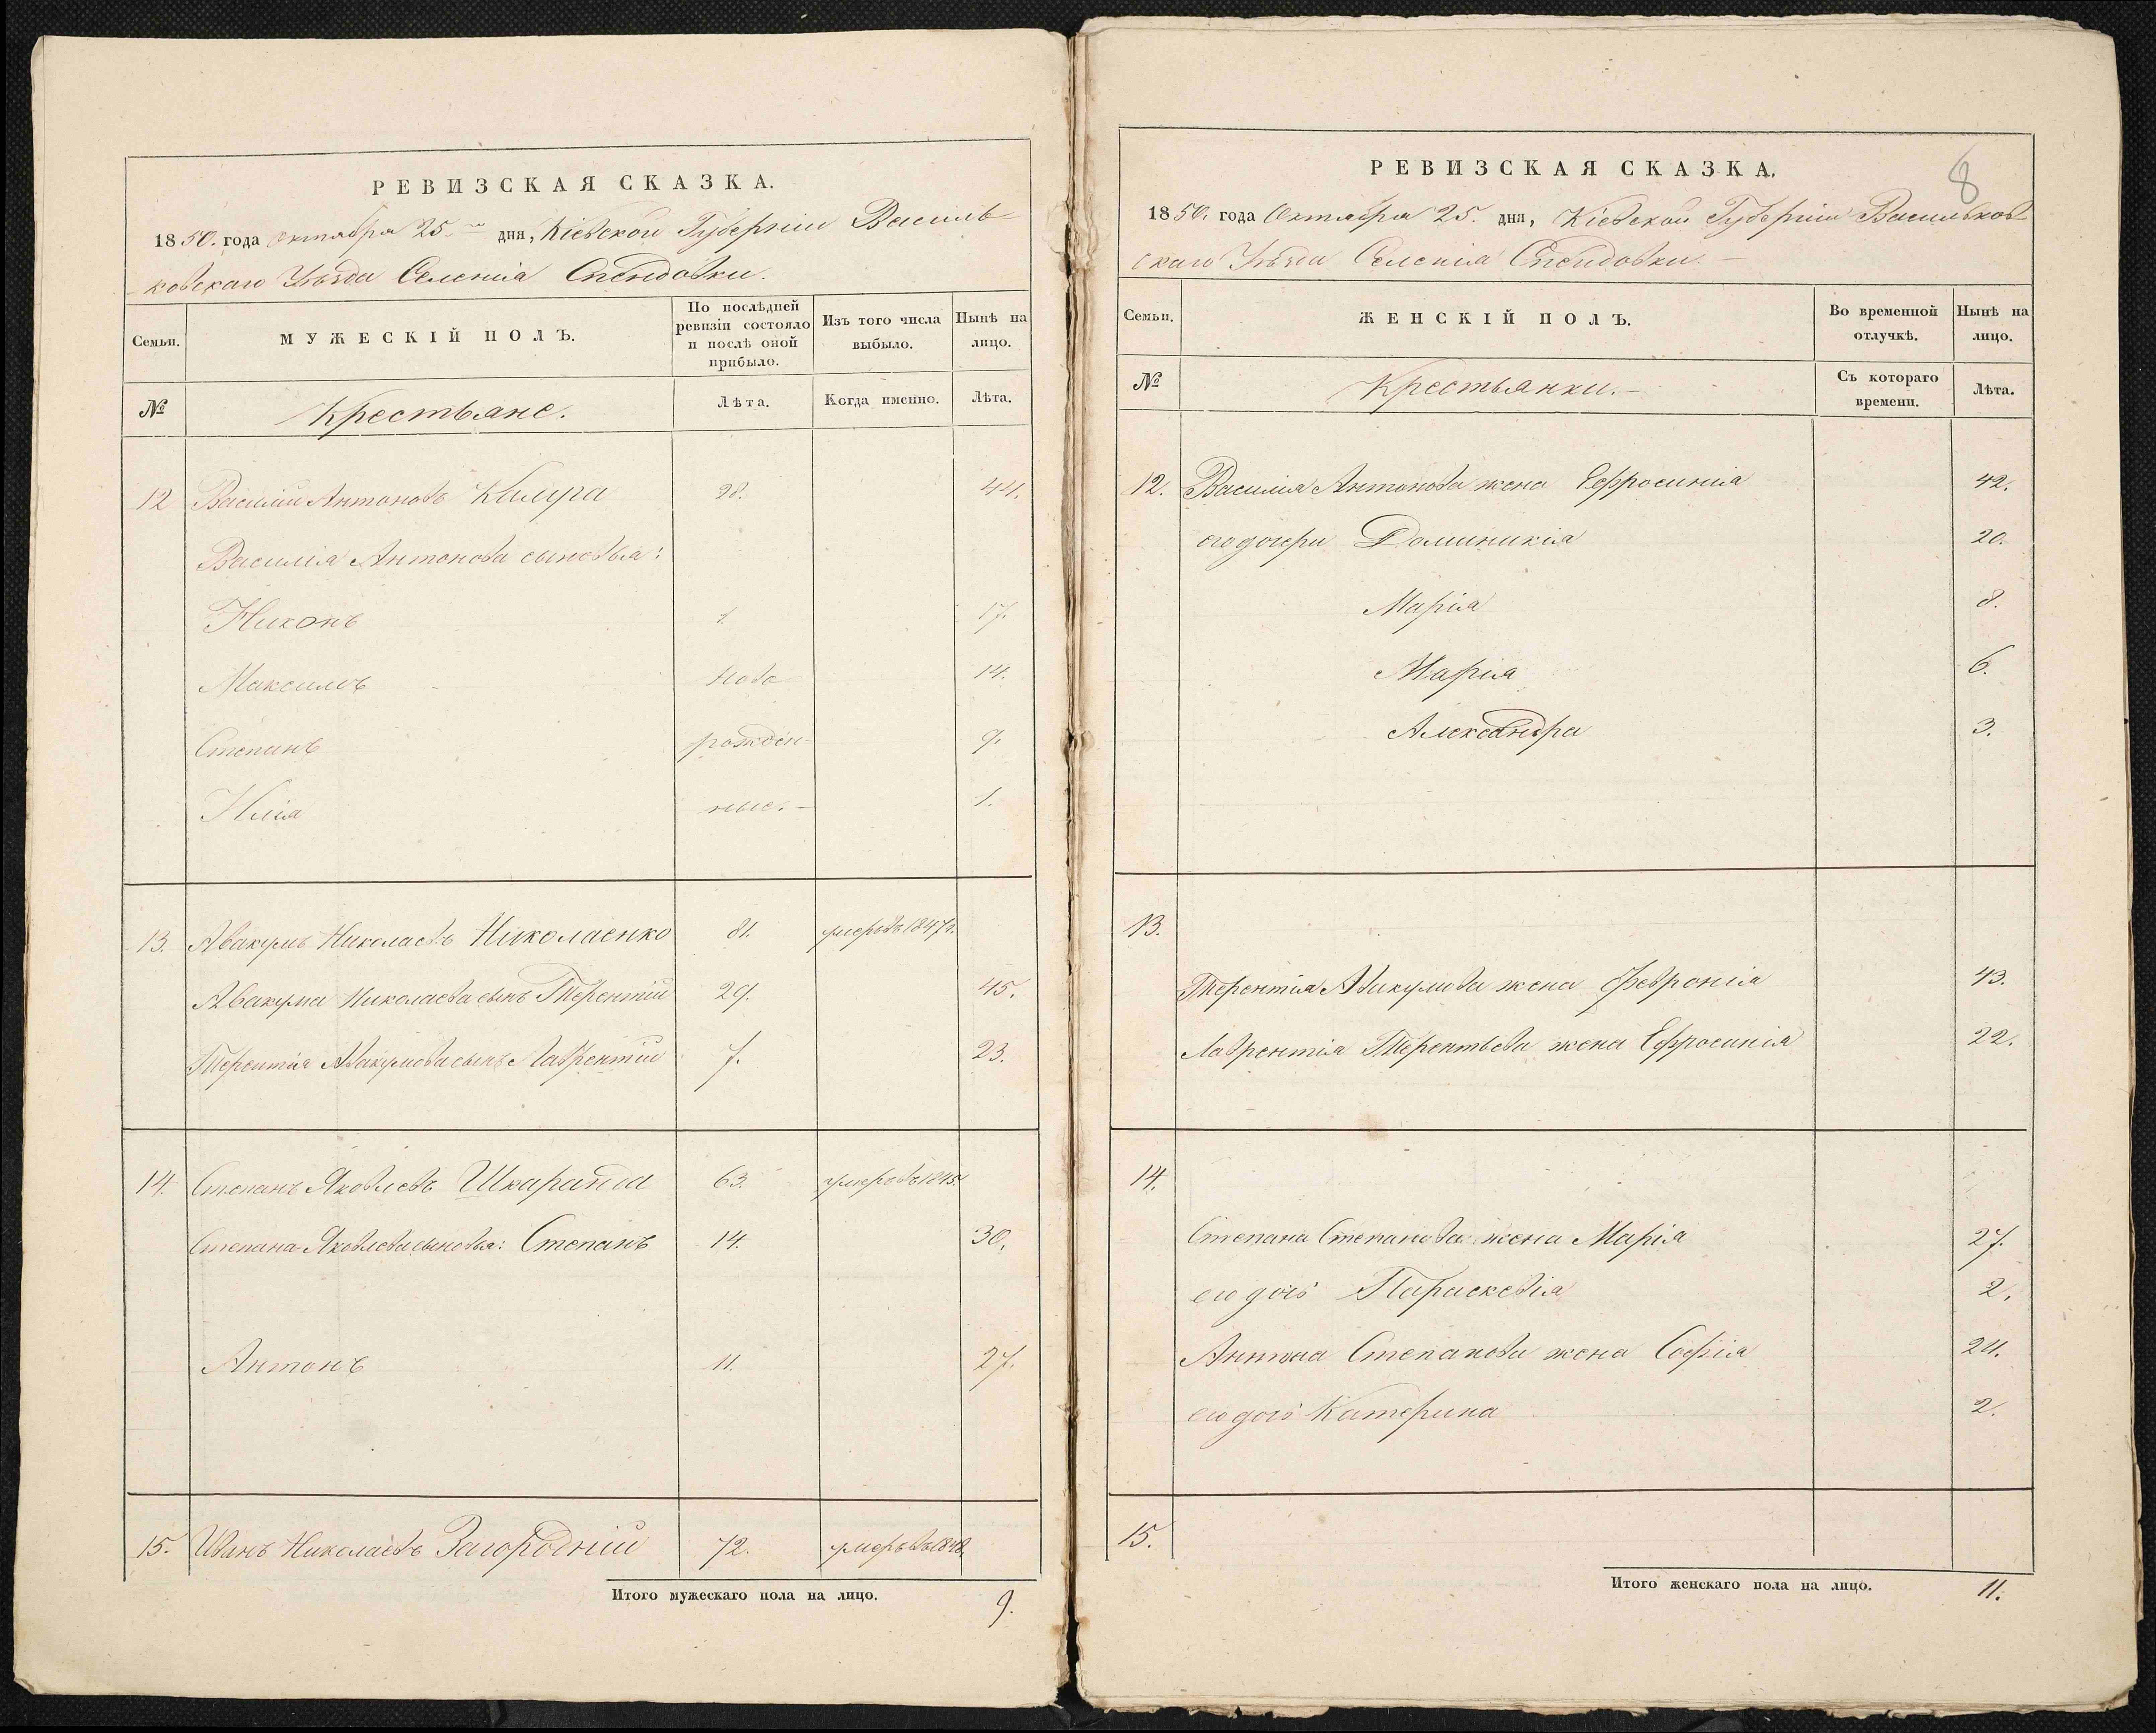 РЕВИЗСКАЯ СКАЗКА.
1850. года Октября 25. дня, Кіевской Губерніи Василь-
ковскаго Уѣзда Селенія Спендовки.
Семьи.
МУЖЕСКІЙ ПОЛЪ.
По послѣдней ревизіи состояло и послѣ оной прибыло.
Изъ того числа выбыло.
Нынѣ на лицо.
№
Крестьяне.
Лѣта.
Когда именно.
Лѣта.
12 Василій Антоновъ 28. 44.
Василія Антонова сыновья:
Никонъ 1. 17.
Максимъ ново 14.
Степанъ рожден- 9.
Илія ные. 1.
13. Авакумъ Николаевъ Николаенко 81. умеръ въ 1847г.
Авакума Николаева сынъ Терентій 29. 45.
Терентія Авакумова сынъ Лаврентій 7. 23.
14. Степанъ Яковлевъ Шкаранда 63. умеръ въ 1845.
Степана Яковлева сыновья: Степанъ 14. 30.
Антонъ 11. 27.
15. Иванъ Николаевъ Загородній 72. умеръ въ 1848.
Итого мужескаго пола на лицо. 9.
8
РЕВИЗСКАЯ СКАЗКА.
1850. года Октября 25. дня, Кіевской Губерніи Васильков-
скаго Уѣзда Селенія Спендовки.
Семьи.
ЖЕНСКІЙ ПОЛЪ.
Во временной отлучкѣ.
Нынѣ на лицо.
№
Крестьянки.
Съ котораго времени.
Лѣта.
12. Василія Антонова жена Ефросинія 42.
его дочери Доминикія 20.
Марія 8.
Марія 6.
Александра 3.
13.
Терентія Авакумова жена Февронія 43.
Лаврентія Терентьева жена Ефросинія 22.
14.
Степана Степанова жена Марія 27.
его дочь Параскевія 2.
Антона Степанова жена Софія 24.
его дочь Катерина 2.
15.
Итого женскаго пола на лицо. 11.